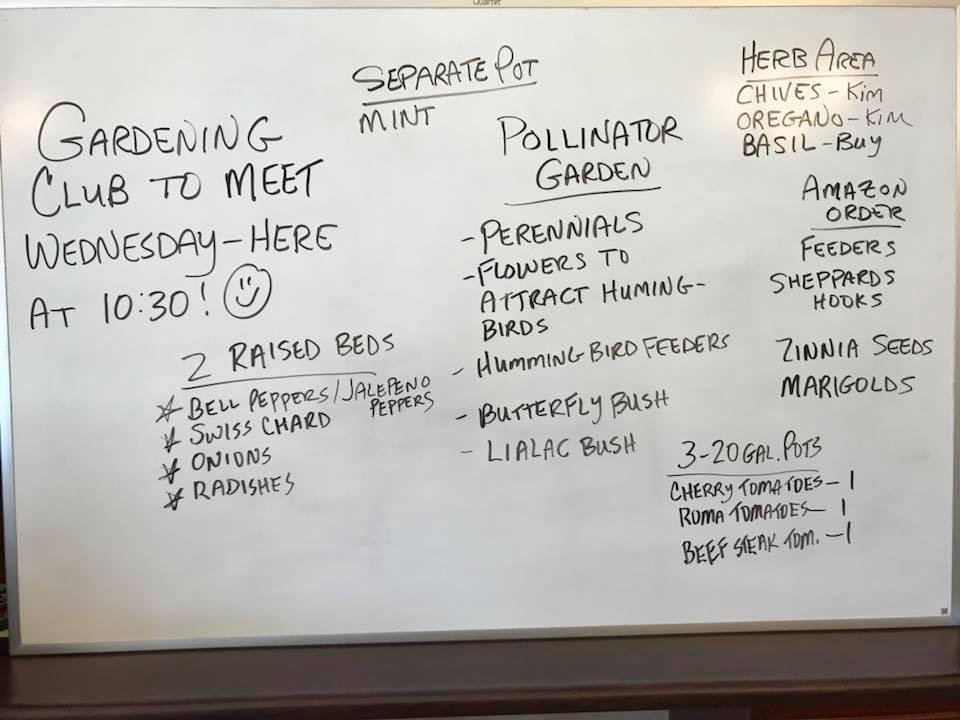 Quartet
SEPARATE POT
MINT
GARDENING
CLUB TO MEET
WEDNESDAY - HERE
AT 10:30!
2 RAISED BEDS
BELL PEPPERS/JALEPENO
PEPPERS
SWISS CHARD
ONIONS
RADISHES
POLLINATOR
GARDEN
- PERENNIALS
- FLOWERS TO
ATTRACT HUMING-
BIRDS
- HUMMINGBIRD FEEDERS
- BUTTERFLY BUSH
- LIALAC BUSH
HERB AREA
CHIVES - Kim
OREGANO - Kim
BASIL - Buy
AMAZON
ORDER
FEEDERS
SHEPPARDS
HOOKS
ZINNIA SEEDS
MARIGOLDS
3-20 GAL. POTS
CHERRY TOMATOES - 1
ROMA TOMATOES - 1
BEEF STEAK TOM. - 1